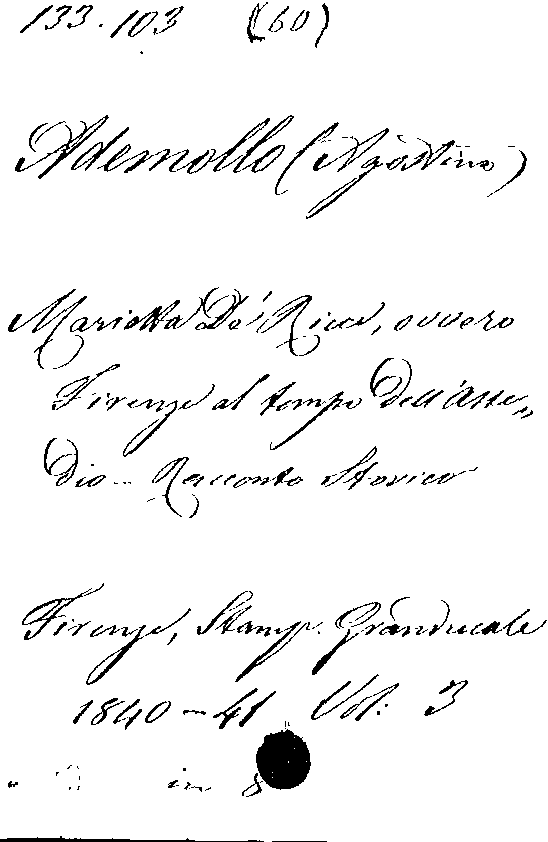 133.103 (60)
Ademollo (Agostino)
Marietta De' Ricci, ovvero
Firenze al tempo dell'Asse„
dio — Racconto Storico
Firenze, Stamp. Granducale
1840-41 Vol: 3
in 8